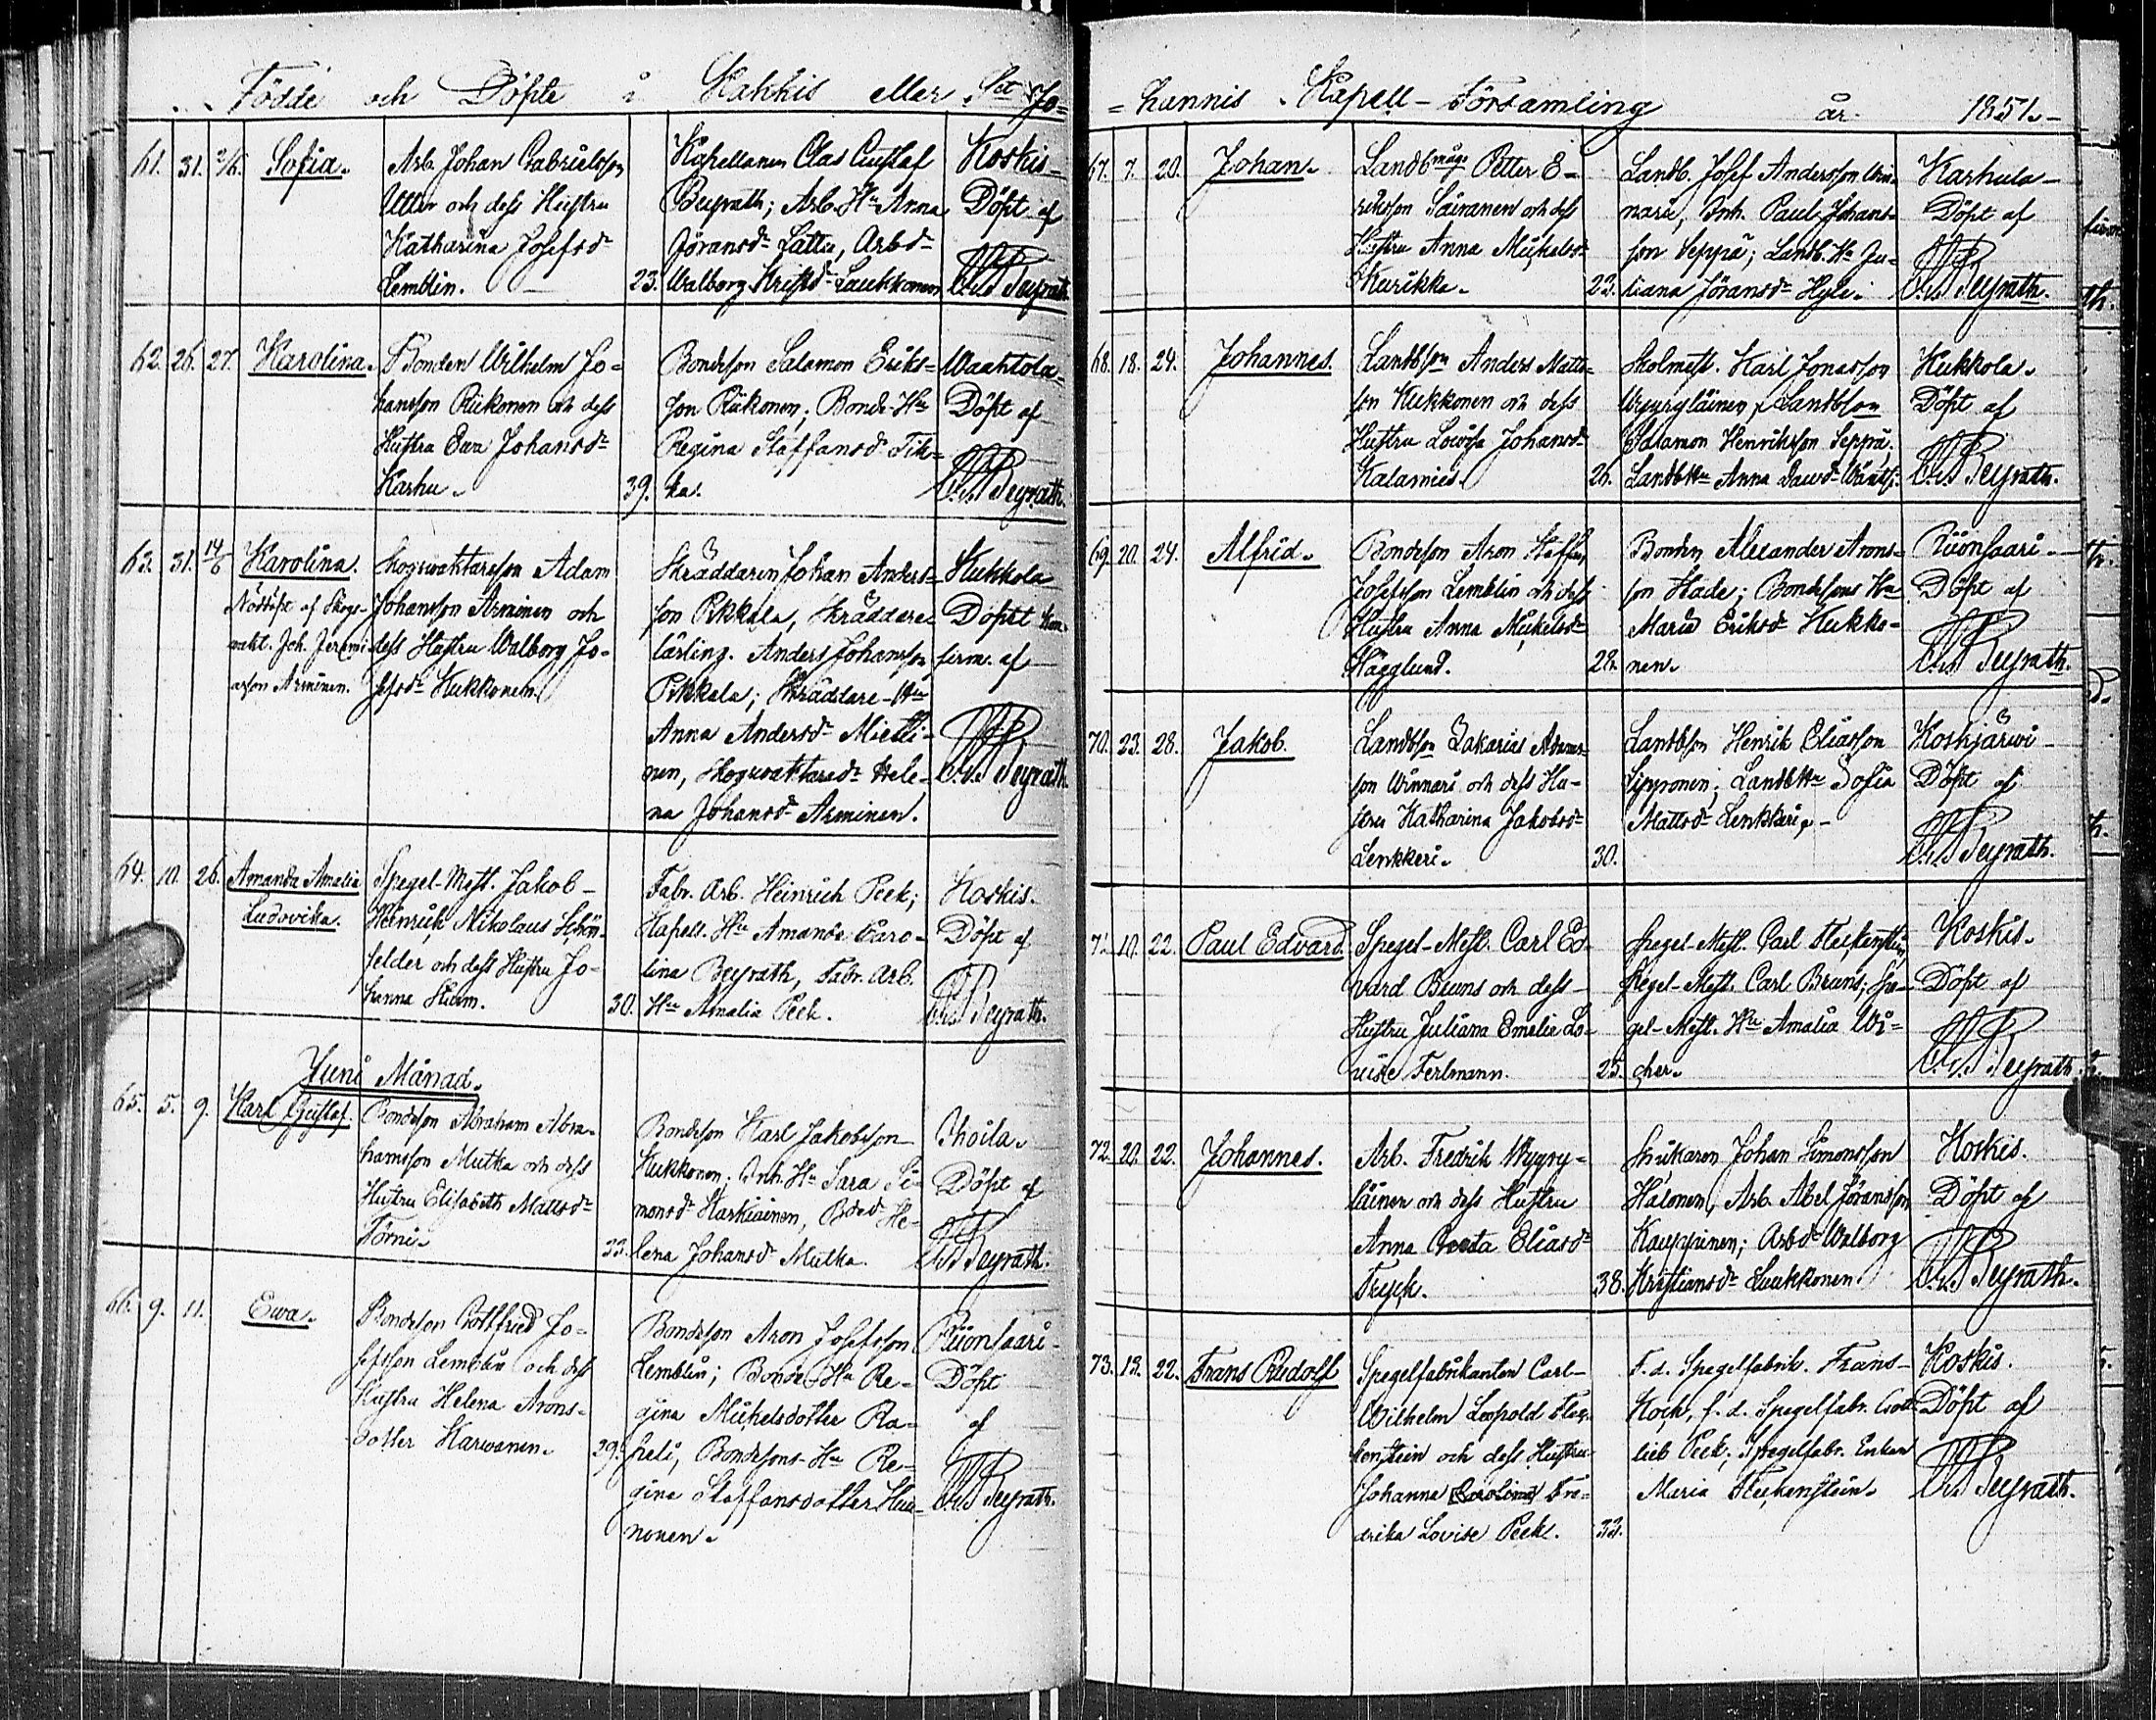 Födde och Döpte i Kakkis eller Sct Jo=
61. 31. 2/6. Sofia.
Arb. Johan Gabrielsson
Utter och dess Hustru
Katharina Josefsdr
Lemblin.
23.
Kapellanen Clas Gustaf
Beyrath; Arb. Hu Anna
Göransdr Lattu, Arbdr
Walborg Kristdr Laukkonen
Koskis
Döpt af
C. G. Beyrath.
62. 26. 27. Karolina.
Bonden Wilhelm Jo=
hansson Riikonen och dess
Hustru Eva Johansdr
Karhu.
39.
Bondeson Salamon Eriks=
son Riikonen; Bonde-Hu
Regina Staffansd Tik=
ka.
Waahtola
Döpt af
C. G. Beyrath.
63. 31. 14/6 Karolina.
Nöddöpt af Skogs-
vakt. Joh. Jeremi-
asson Arminen.
Skogwaktaresson Adam
Johansson Arminen och
dess Hustru Walborg Jo-
sefsdr Kukkonen.
Skräddaren Johan Anders=
son Pikkala, Skräddare
lärling. Anders Johansson
Pikkala; Skräddare-Hu
Anna Andersdr Mietti-
nen, Skogwaktaredr Hele-
na Johansdr Arminen.
Kukkola
Döpet kon-
firm. af
C. G. Beyrath.
64. 10. 26. Amanda Amalia
Ludovika.
Spegel-Mest. Jakob
Heinrich Nikolaus Schön-
felder och dess Hustru Jo-
hanna Sturm.
30.
Fabr. Arb. Heinrich Peek;
Kapell. Hu Amanda Caro-
lina Beyrath, Fabr. Arb.
Hu Amalia Peek.
Koskis.
Döpt af
C. G. Beyrath.
Juni Månad.
65. 5. 9. Karl Gustaf.
Bondeson Abraham Abra-
hamsson Mutka och dess
Hustru Elisabeth Mattsdr
Törni.
33.
Bondeson Karl Jakobsson
Kukkonen; Inh. Hu Sara Si-
monsdr Harkiainen, Bdedr He-
lena Johansdr Mutka.
Ihoila.
Döpt af
C. G. Beyrath.
66. 9. 11. Ewa.
Bondeson Gottfried Jo-
sefsson Lemblin och dess
Hustru Helena Arons-
dotter Harwanen.
39.
Bondeson Aron Josefsson
Lemblin; Bonde-Hu Re-
gina Mickelsdotter Ra-
pheli, Bondesons-Hu Re-
gina Staffansdotter
nonen.
Riionsaari
Döpt
af
C. G. Beyrath.
=hannis Kapell-Församling år 1851.
67. 7. 20. Johan.
Landbmåg Petter E-
riksson Sairanen och dess
Hustru Anna Mickelsdr
Kurikka.
22.
Landb. Josef Andersson Win-
nari, Inh. Paul Johans-
son Seppä; Landb. Hu Ju-
liana Göransdr Hyle.
Karhula
Döpt af
C. G. Beyrath.
68. 18. 24. Johannes.
Landbson Anders Matts-
son Kukkonen och dess
Hustru Lowisa Johansdr
Kalamies.
26.
Skolmest. Karl Jonasson
Wyyryläinen, Landbson
Salamon Henriksson Seppä;
LandbHu Anna Dawdr Wäntsi.
Kukkola.
Döpt af
C. G. Beyrath.
69. 20. 24. Alfrid.
Bondeson Aron Staffan
Josefsson Lemblin och dess
Hustru Anna Mickelsdr
Hägglund.
28.
Bonden Alexander Arons-
son Hade; Bondesons Hu
Maria Eriksdr Kukko-
nen.
Riionsaari
Döpt af
C. G. Beyrath.
70. 23. 28. Jakob.
Landbson Zakarias Adams-
son Winnari och dess Hu-
stru Katharina Jakobsdr
Lenkkeri.
30.
Landbson Henrik Eliasson
Lipponen; LandbHu Sofia
Mattsdr Lenkkeri.
Koskjärwi
Döpt af
C. G. Beyrath.
71. 10. 22. Paul Edvard.
Spegel-Mest. Carl Ed-
vard Bruns och dess
Hustru Juliana Emelie Lo-
uise Ferlmann.
25.
Spegel-Mest. Carl Fleckenstein,
Spegel-Mest. Carl Bruns; Spe-
gel-Mest. Hu Amalia Wi-
cher.
Koskis.
Döpt af
C. G. Beyrath.
72. 20. 22. Johannes.
Arb. Fredrik Wyyry-
läinen och dess Hustru
Anna Greta Eliasdr
Tryck.
38.
Snickaren Johan Simonsson
Halonen, Arb. Abel Göransson
Kauppinen; Arbdr Walborg
Kristiansdr Laukkonen.
Koskis.
Döpt af
C. G. Beyrath.
73. 13. 22. Frans Rudolf
Spegelfabrikanten Carl
Wilhelm Leopold Flec-
kenstein och dess Hustru
Johanna Carolina Fre-
drika Lovise Peek.
33.
F. d. Spegelfabrik. Frans
Koch, f. d. Spegelfabr. Gott-
lieb Peek; Spegelfabr. Enkan
Maria Fleckenstein.
Koskis.
Döpt af
C. G. Beyrath.